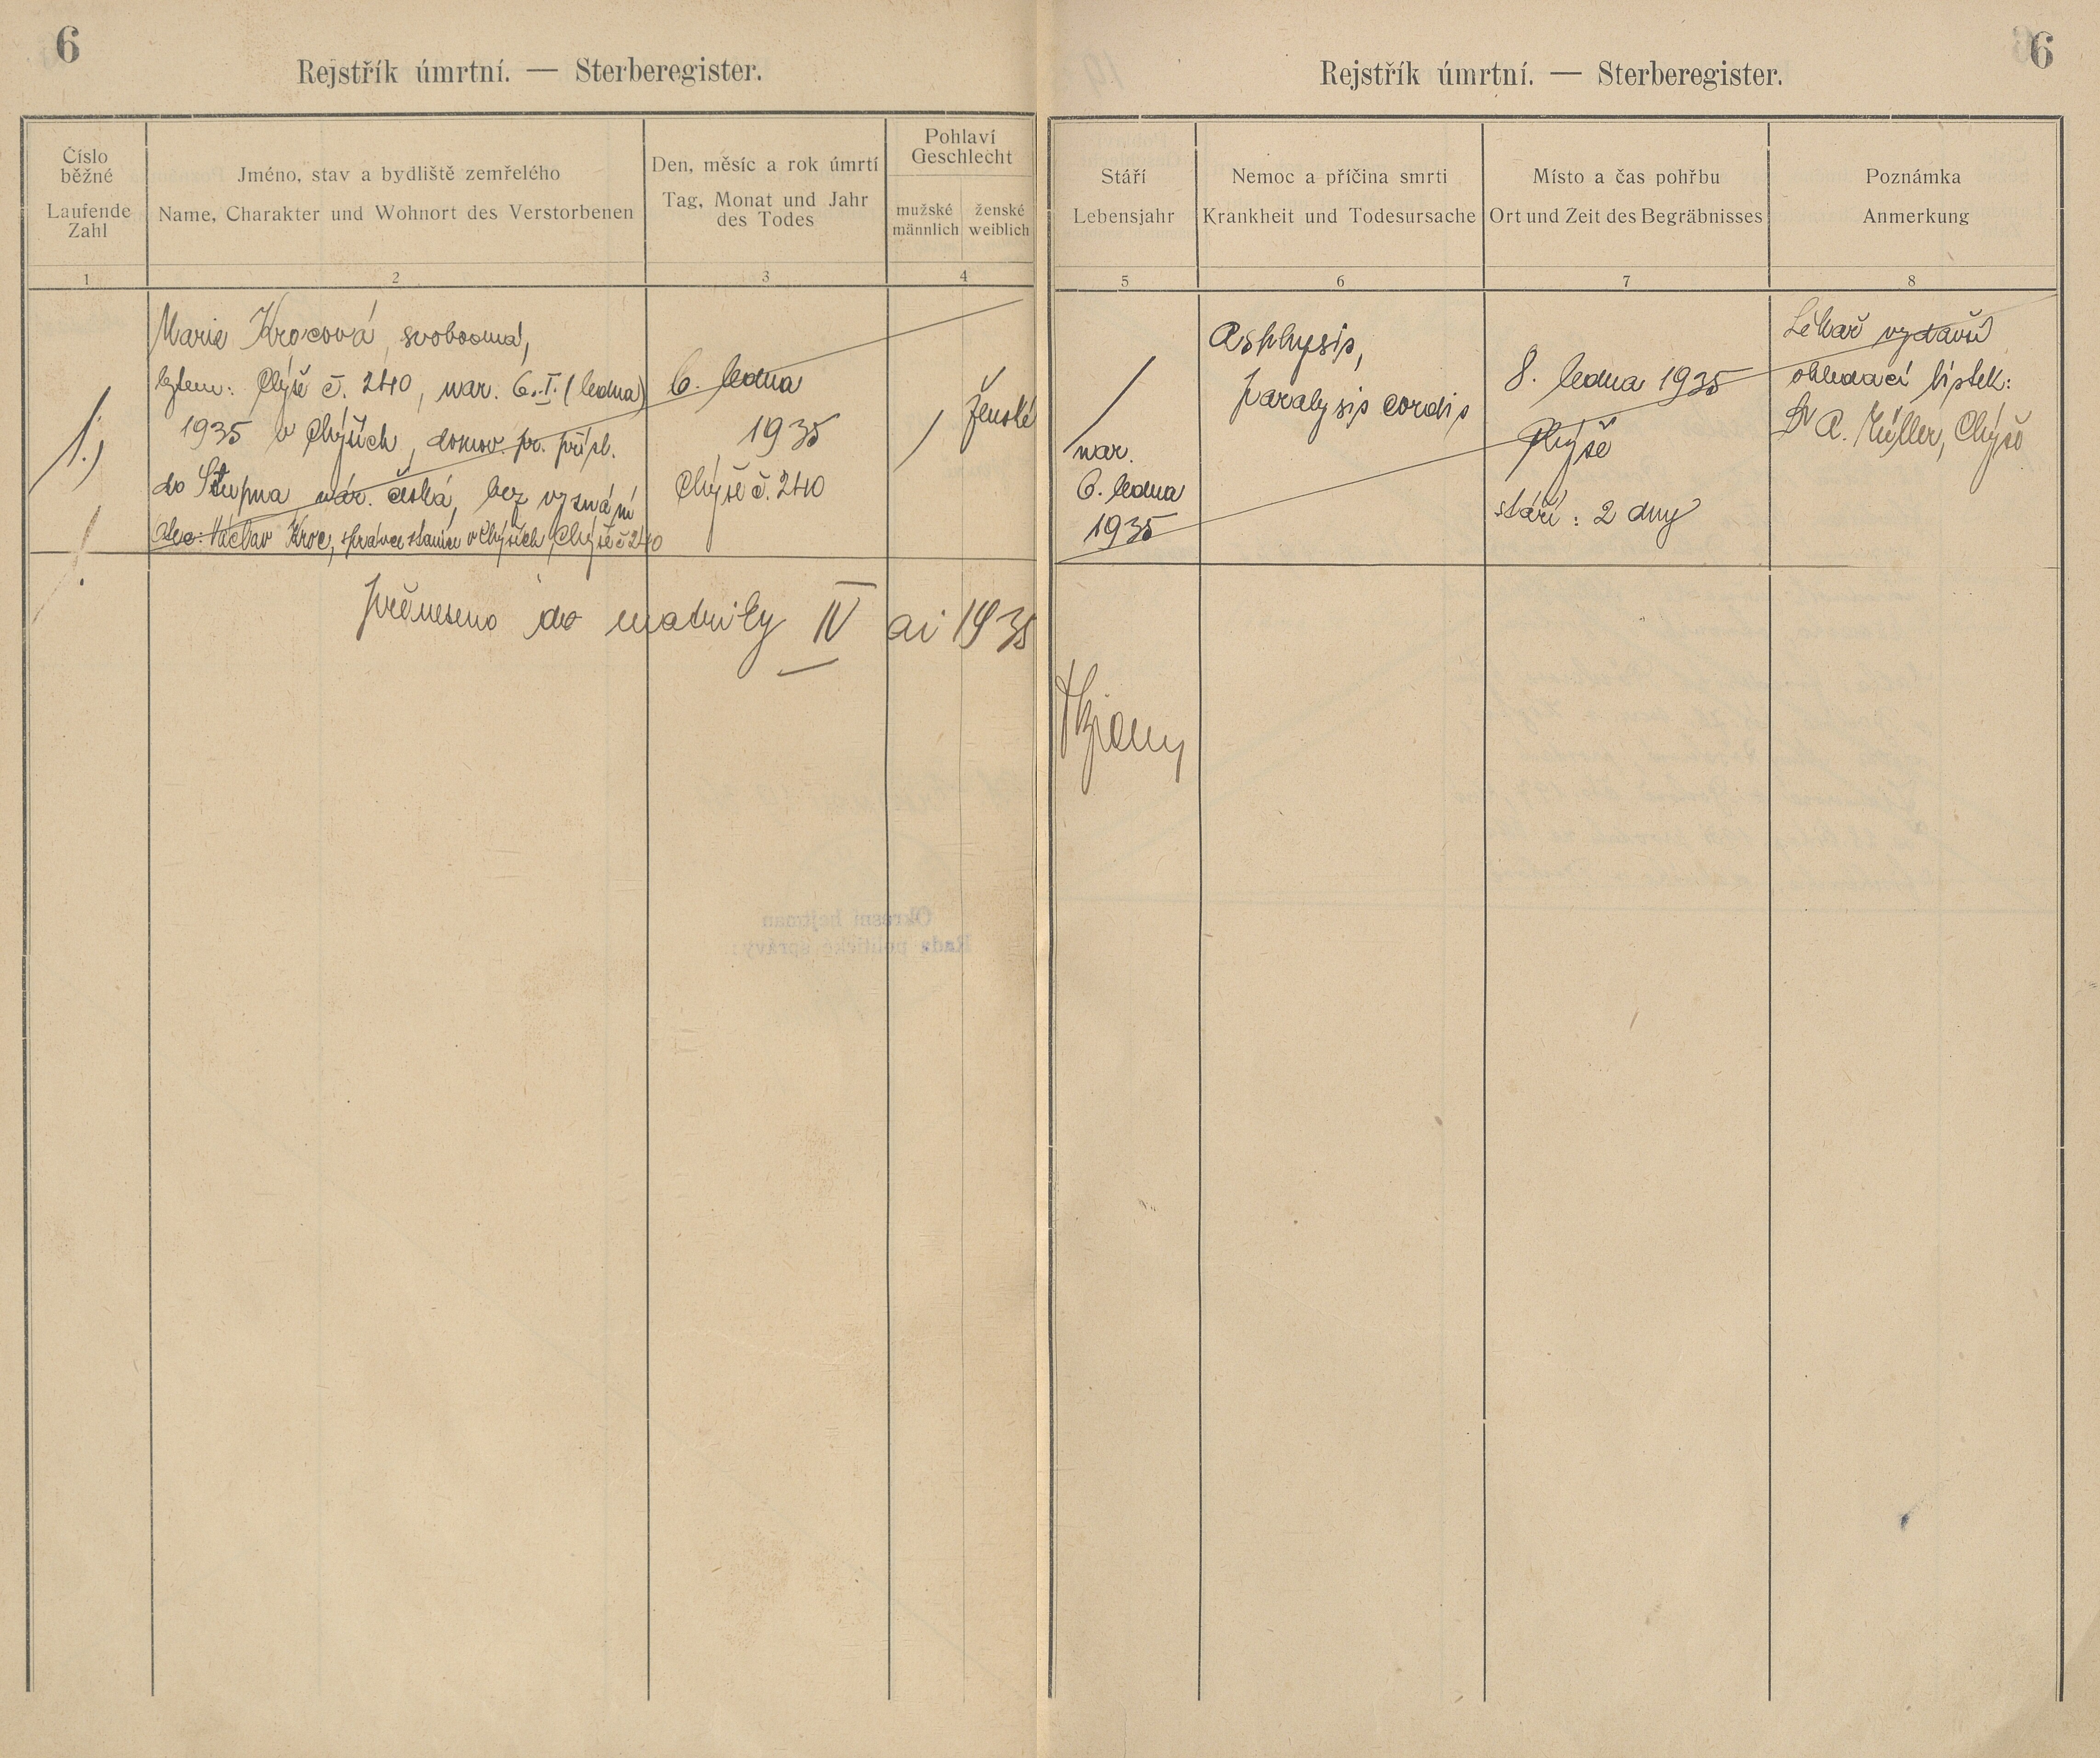 6
Rejstřík úmrtní. — Sterberegister.
Číslo
běžné
Laufende
Zahl
Jméno, stav a bydliště zemřelého
Name, Charakter und Wohnort des Verstorbenen
Den, měsíc a rok úmrtí
Tag, Monat und Jahr
des Todes
Pohlaví
Geschlecht
mužské
männlich
ženské
weiblich
1
2
3
4
1.)
Marie Krocová, svobodná,
bytem: Chýše č. 240, nar. 6. I. (ledna)
1935 v Chýších, domov. pr. přísl.
do Stupna nár. česká, bez vyznání
otec: Václav Kroc, správce stanice v Chýších, Chýše č 240
6. ledna
1935
Chýše č. 240
ženské
přeneseno do matriky IV ai 1935
Okresní hejtman
Rada politické správy:
6
Rejstřík úmrtní. — Sterberegister.
Stáří
Lebensjahr
Nemoc a příčina smrti
Krankheit und Todesursache
Místo a čas pohřbu
Ort und Zeit des Begräbnisses
Poznámka
Anmerkung
5
6
7
8
nar.
6. ledna
1935
paralysis cordis
8. ledna 1935
Chýše
stáří: 2 dny
Lékař vydavší
ohledací lístek:
Dr A. Müller, Chýše